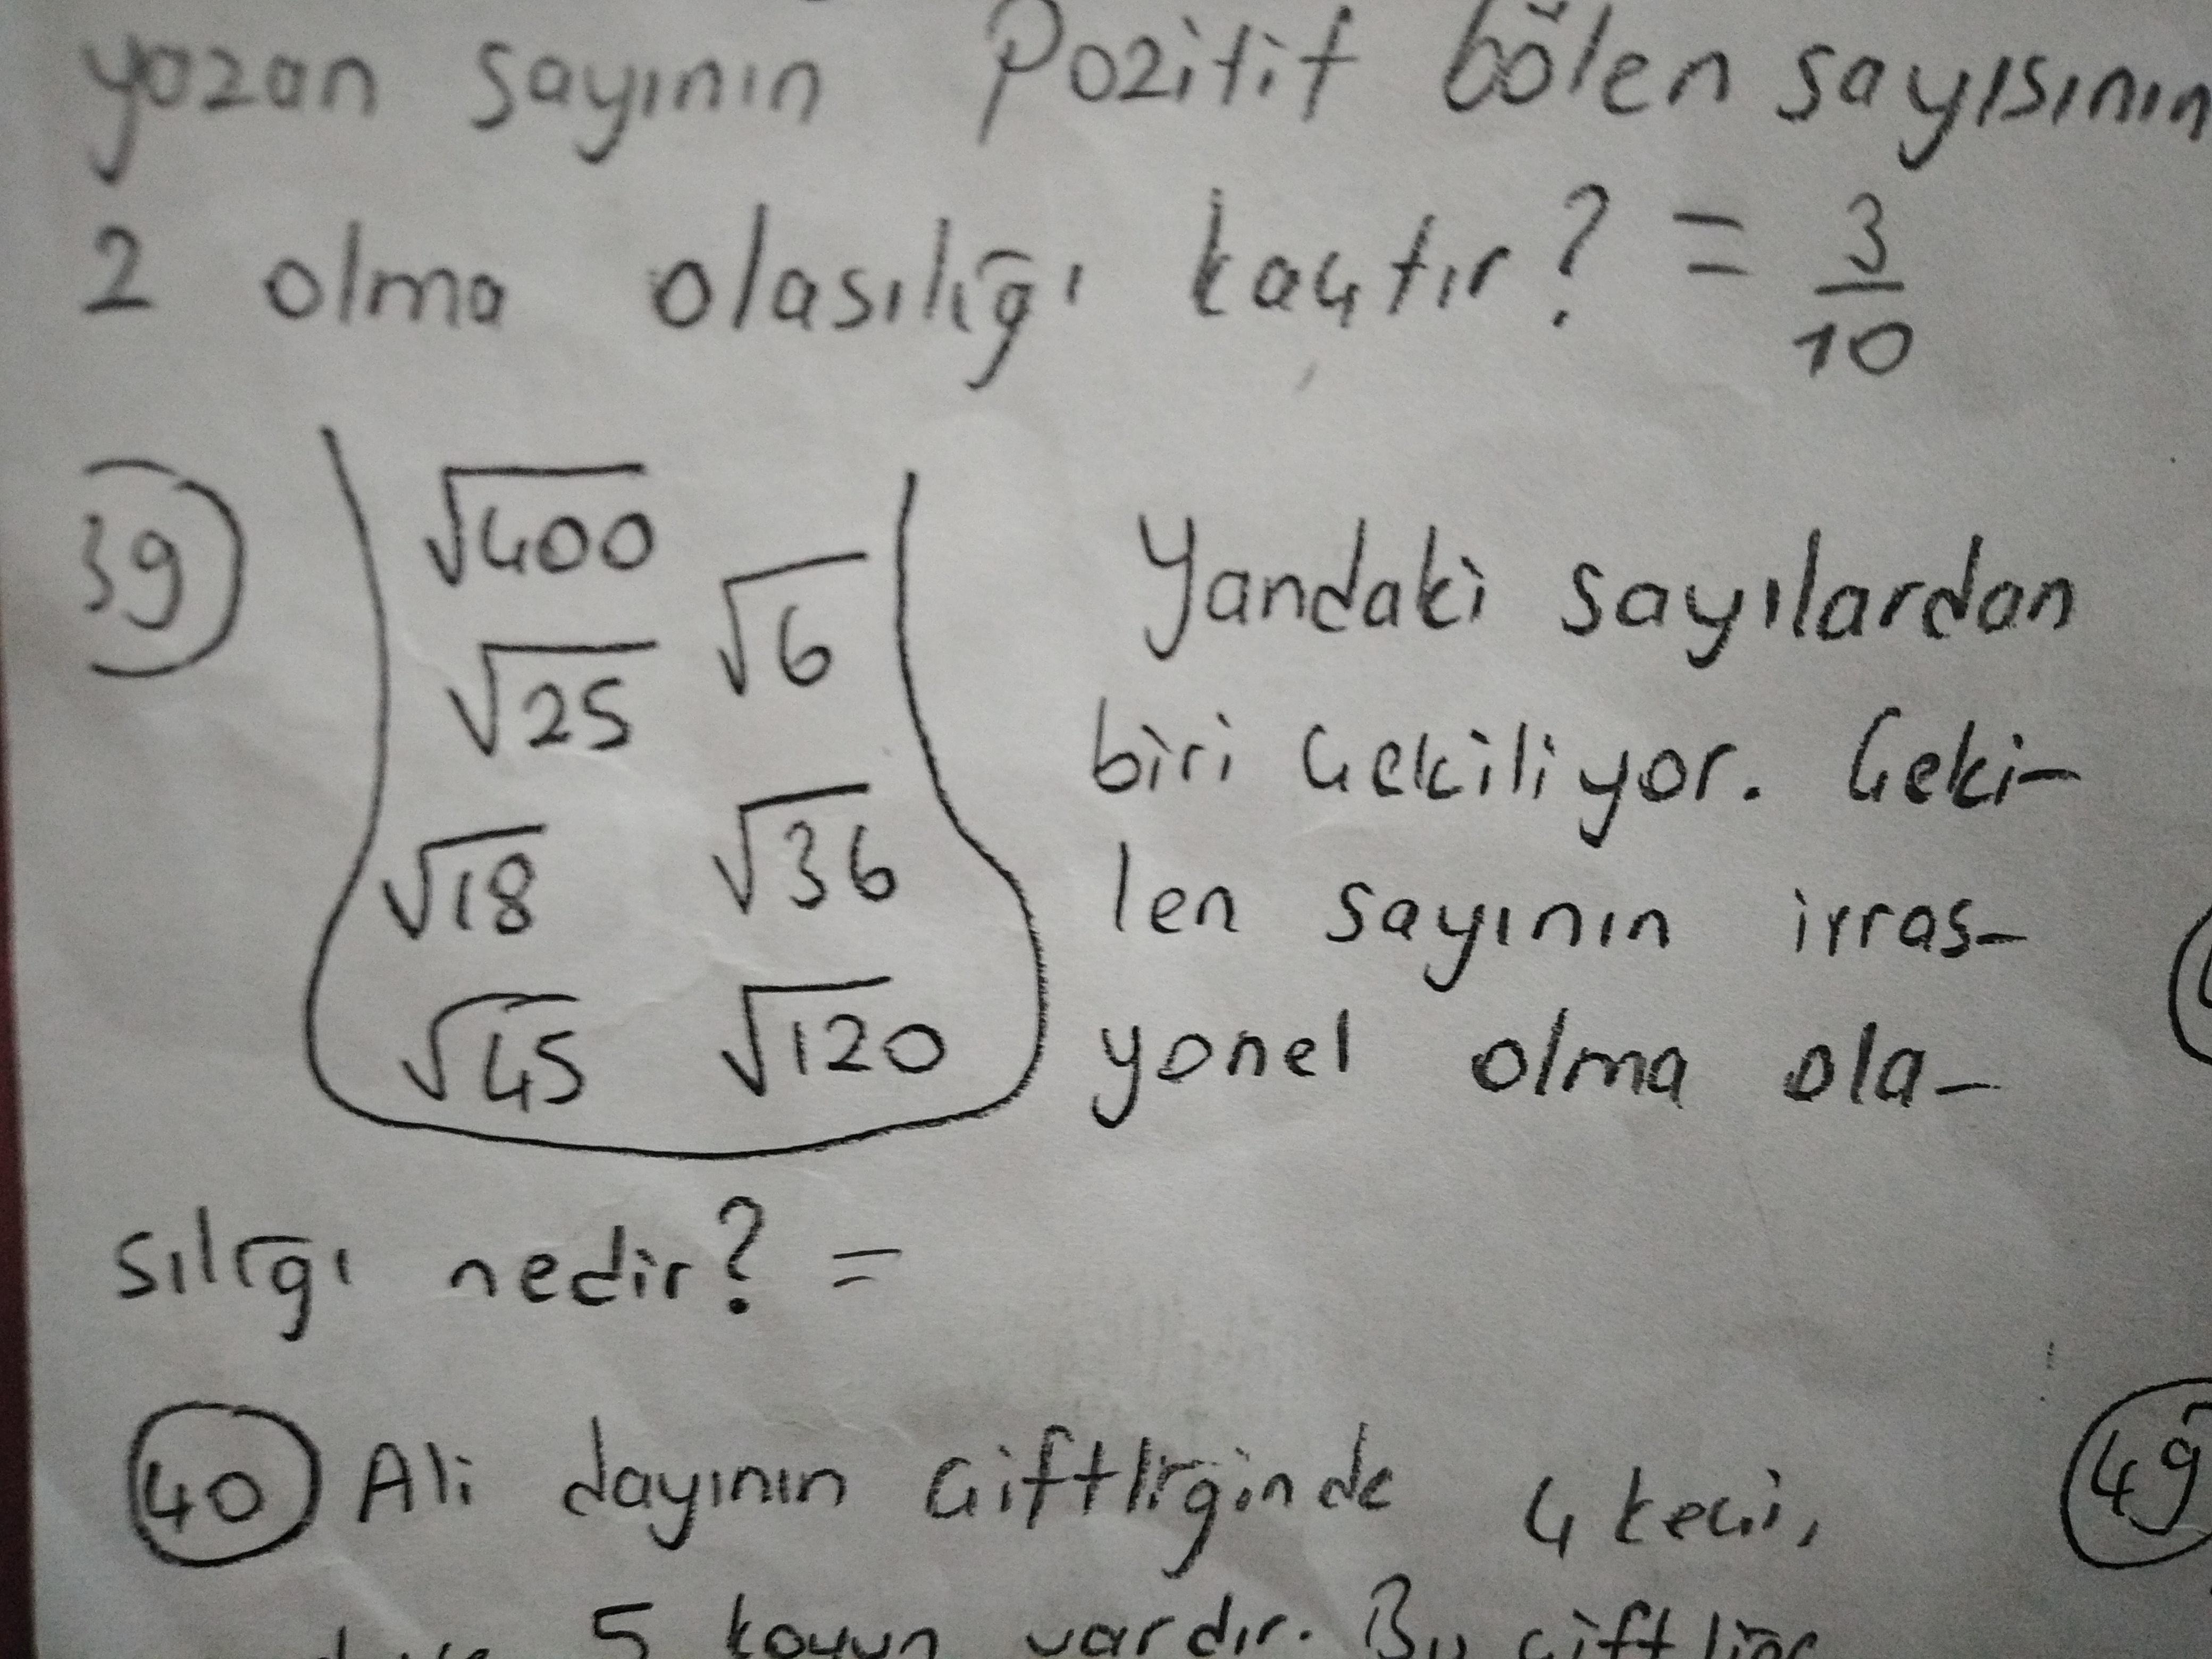 yazan sayının pozitif bölen sayısının
2 olma olasılığı kaçtır? = 3/10
39
√400
√6
√25
√18
√36
√45
√120
Yandaki sayılardan
biri çekiliyor. Çeki-
len sayının irras-
yonel olma ola-
sılığı nedir? =
40 Ali dayının çiftliğinde 4 keçi,
5 koyun vardır. Bu
49